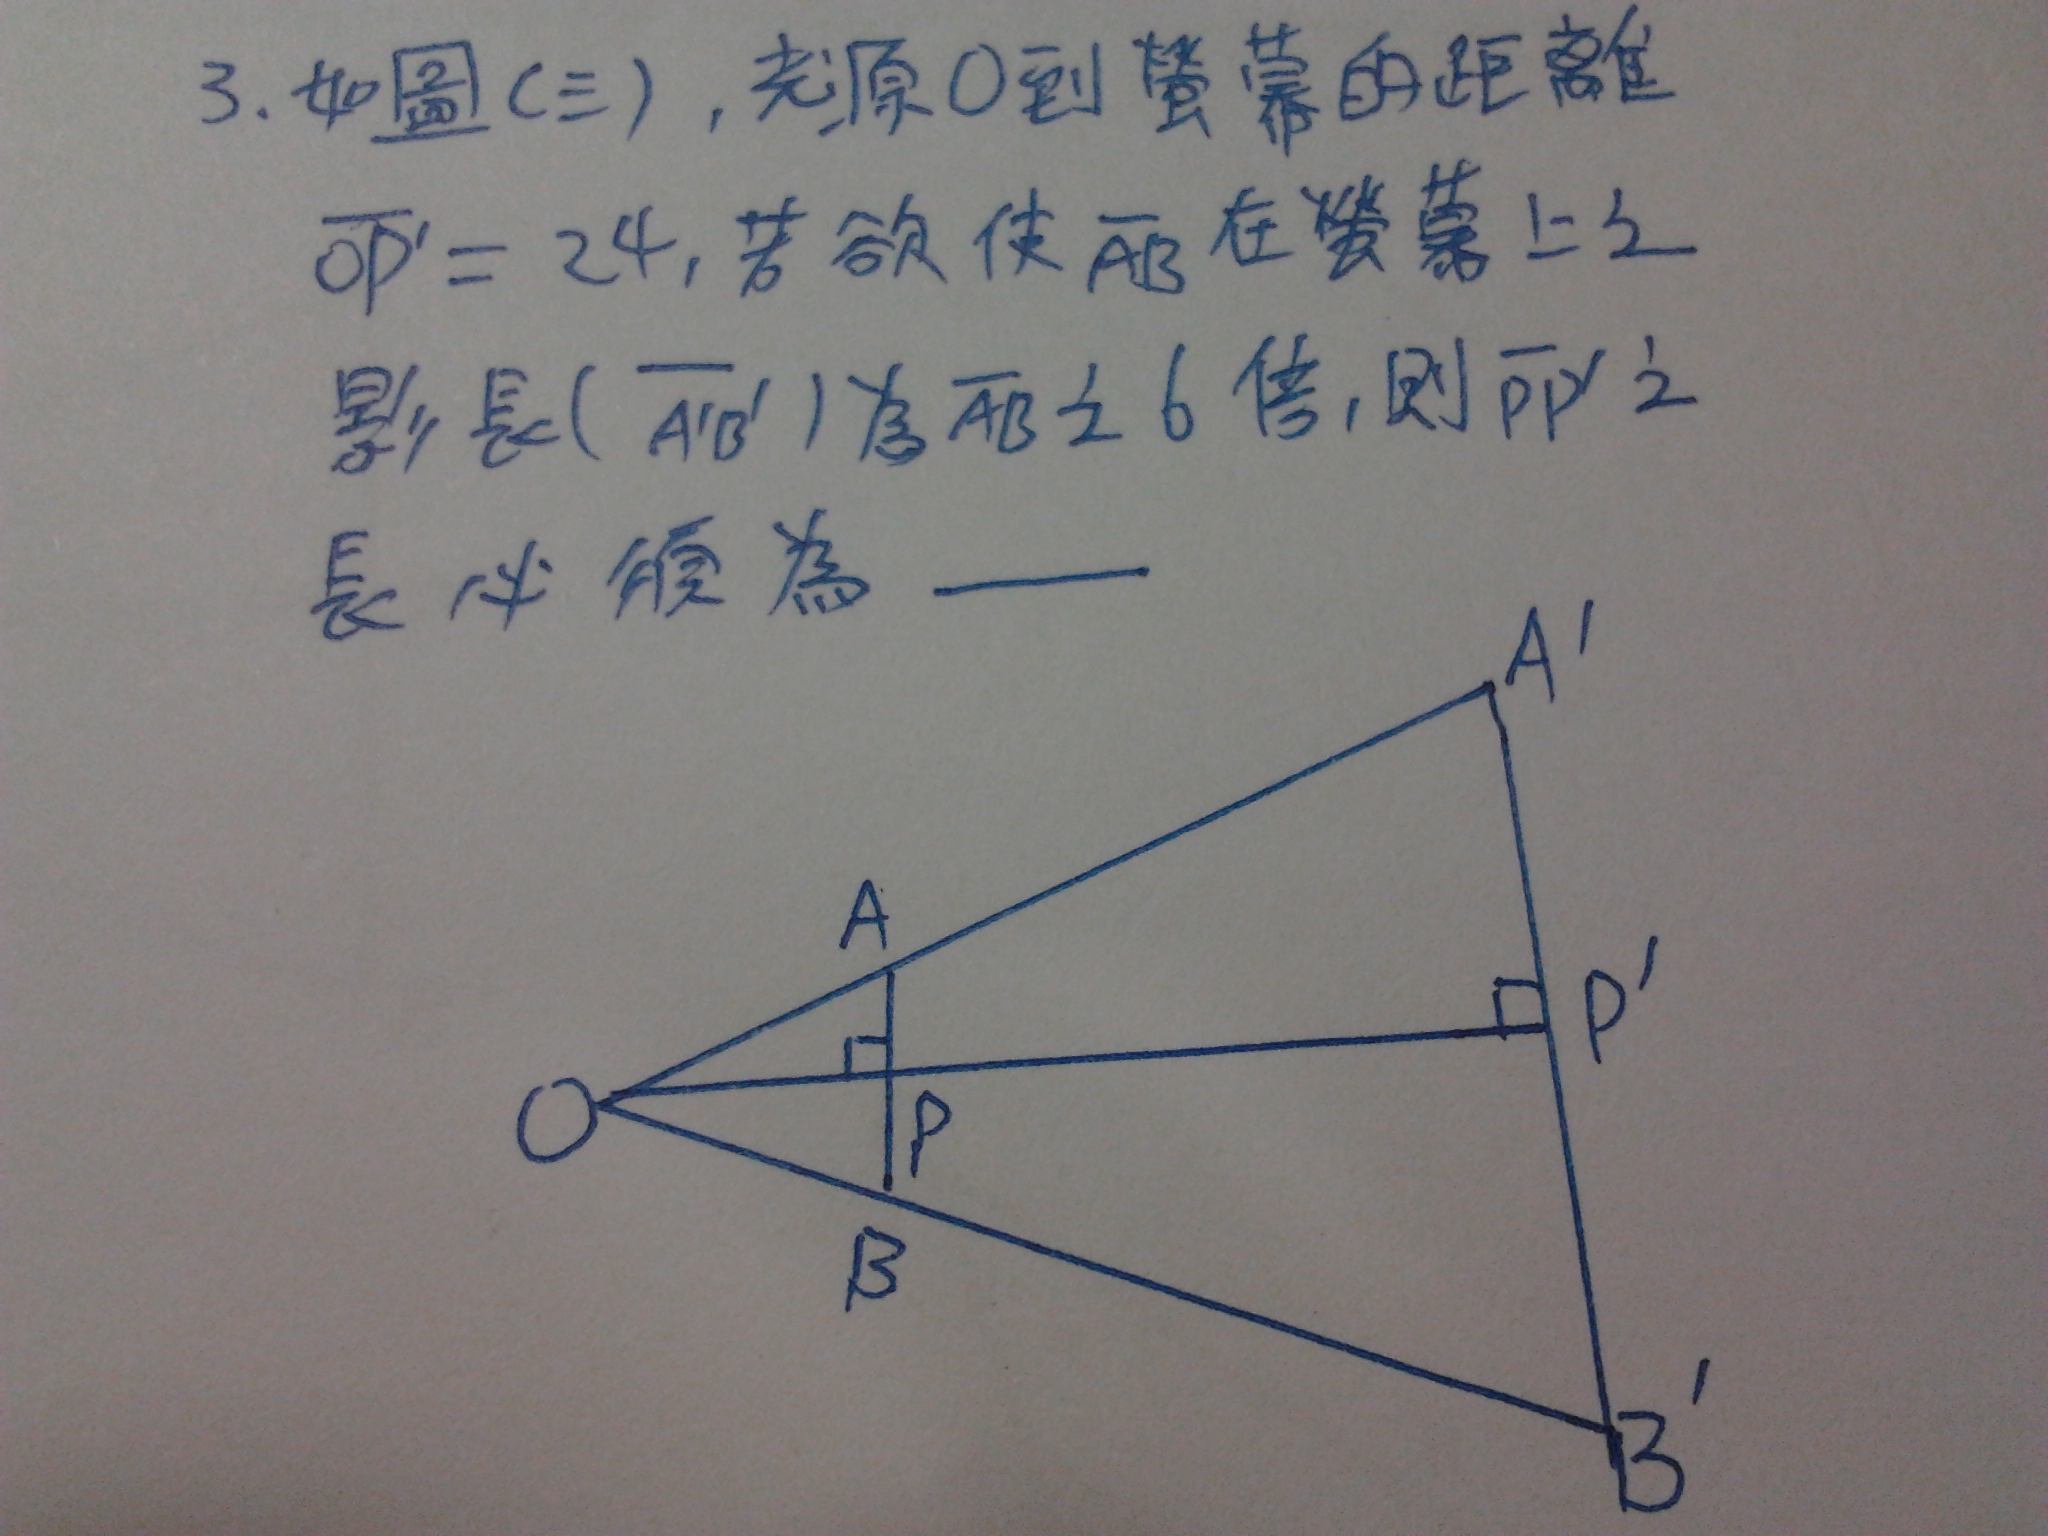 3. 如圖(三), 光源O到螢幕的距離
OP' = 24, 若欲使AB在螢幕上之
影長(A'B')為AB之6倍, 則PP'之
長必須為 ____
A'
A
P'
O
P
B
B'